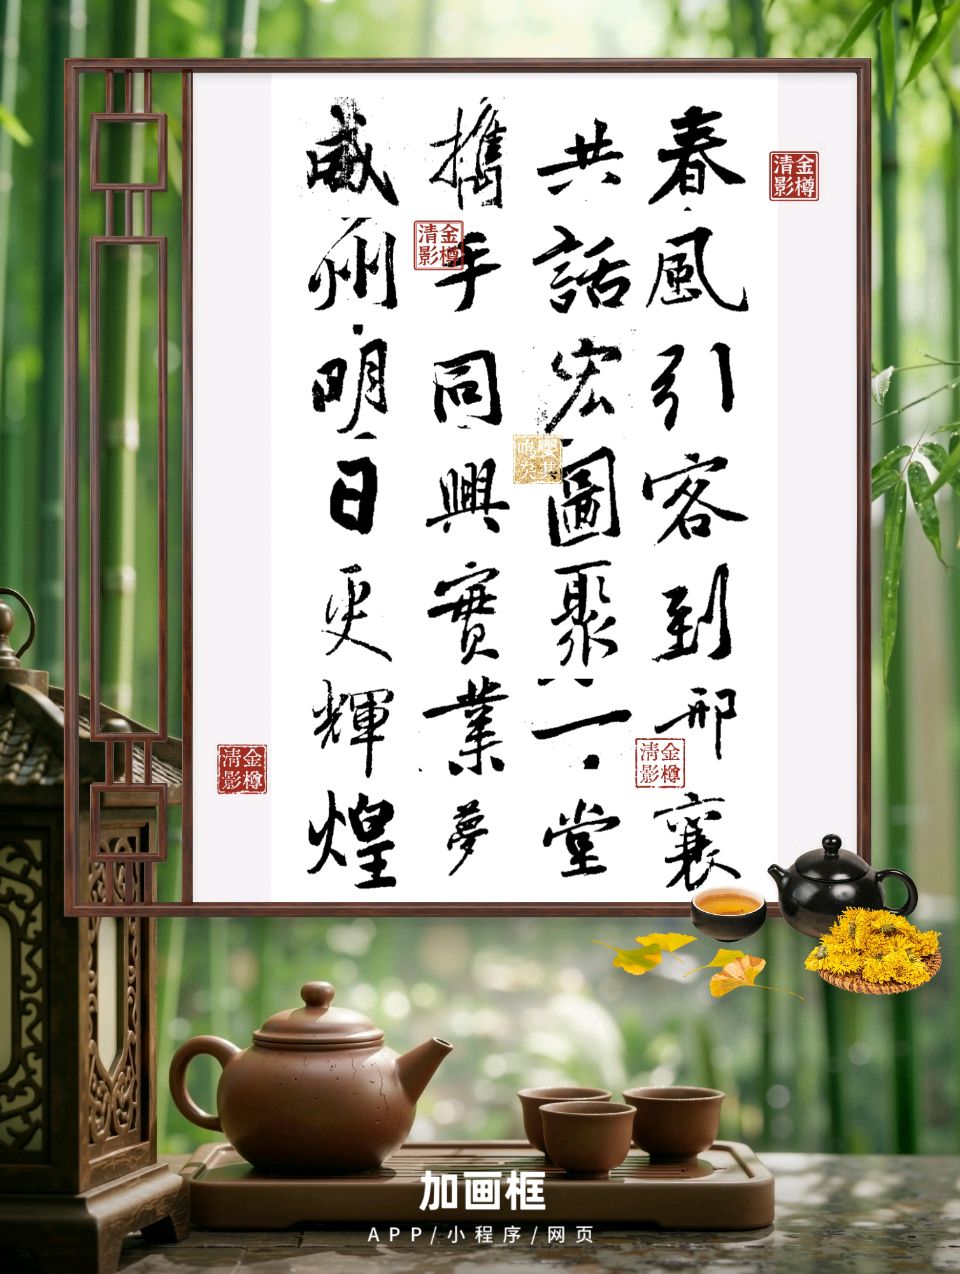 春風引客到邢襄
共話宏圖聚一堂
攜手同興實業夢
威州明日更輝煌
金樽清影
金樽清影
金樽清影
金樽清影
加画框
APP/小程序/网页